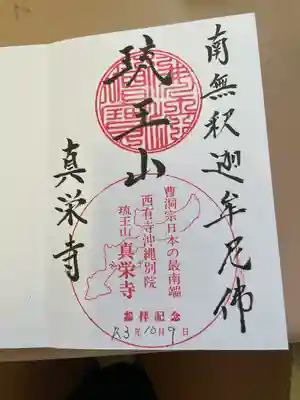 南無釈迦牟尼佛
琉王山
真栄寺
曹洞宗日本の最南端
西有寺沖縄別院
琉王山 真栄寺
参拝記念
R3年10月9日